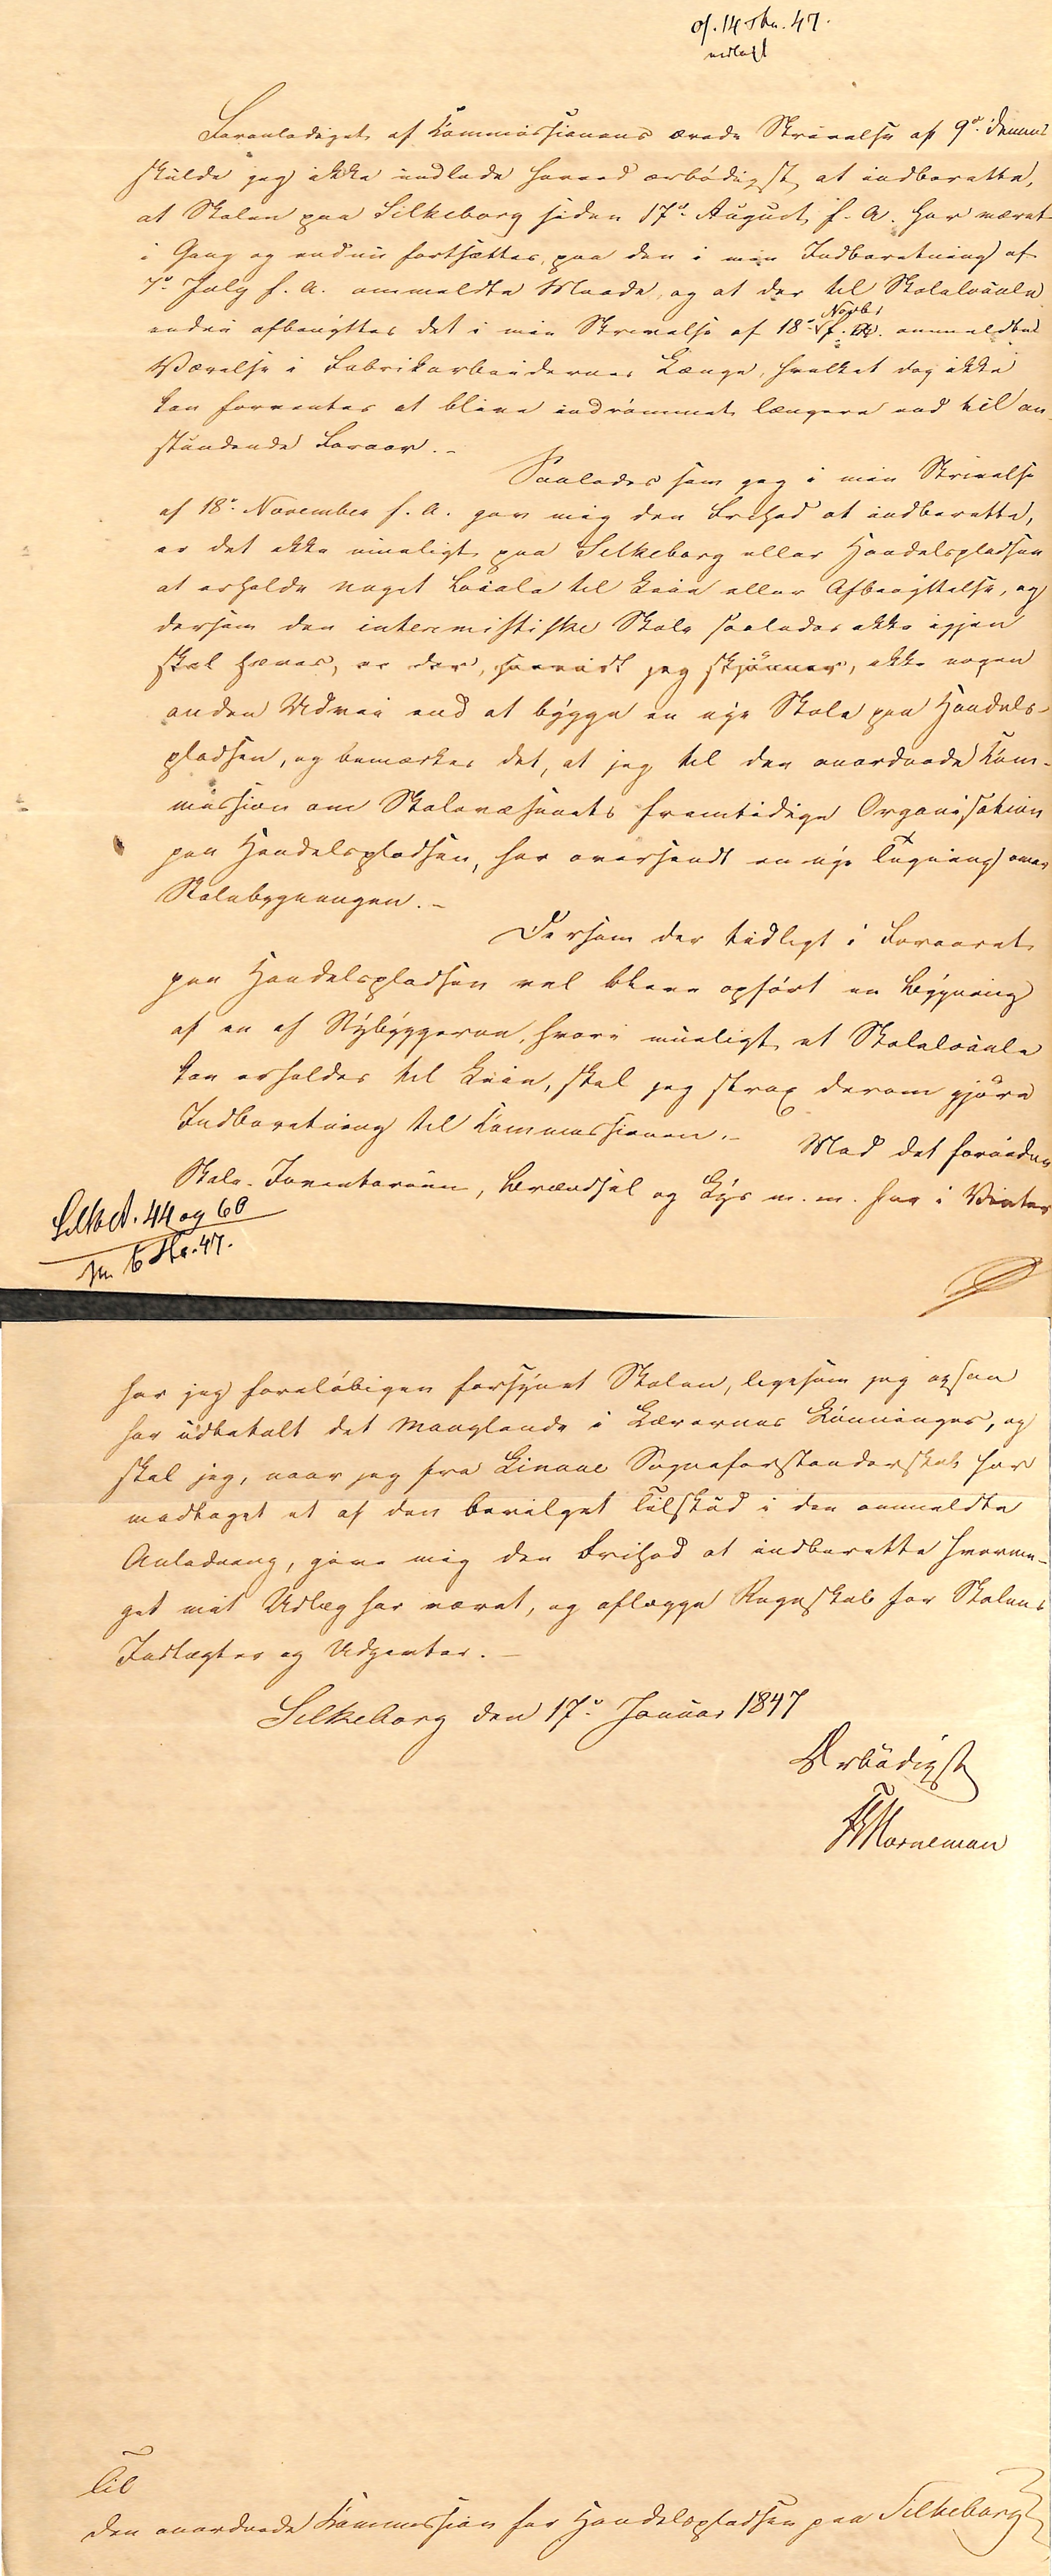 47.
Foranlediget af Kommissionens ærede Skrivelse af 9d. dennes
skulde jeg ikke undlade herved ærbødigst at indberette,
at Skolen paa Silkeborg siden 17d. August f. A. har været
i Gang og endnu fortsættes, paa den i min Indberetning af
7d. July f. A. ommeldte Maade, og at der til Skolelocale
endnu afbenyttes det i min Skrivelse af 18d. Novbr f. A. anmeldte
Værelse i Fabrikarbeidernes Længe, hvilket dog ikke
kan forventes at blive indrømmet længere end til an-
stundende Foraar. -
Saaledes som jeg i min Skrivelse
af 18d. November f. A. gav mig den Frihed at indberette,
er det ikke mueligt paa Silkeborg eller Handelspladsen
at erholde noget Locale til Leie eller Afbenyttelse, og
dersom den interimistiske Skole saaledes ikke igjen
skal hæves, er der, saavidt jeg skjønner, ikke nogen
anden Udvei end at bygge en nye Skole paa Handels-
pladsen, og bemærkes det, at jeg til den anordnede Kom-
mission om Skolevæsenets fremtidige Organisation
paa Handelspladsen, har oversendt en nye Tegning over
Skolebygningen. -
Dersom der tidligt i Foraaret
paa Handelspladsen vil blive opført en Bygning
af en af Nybyggerne, hvori mueligt et Skolelocale
kan erholdes til Leie, skal jeg strax derom gjøre
Indberetning til Kommissionen. - Med det fornødne
Skole-Inventarium, Brændsel og Lys m. m. her i Vinter
44 og 60
47.
har jeg foreløbigen forsynet Skolen, ligesom jeg ogsaa
har udbetalt det Manglende i Lærernes Lønninger, og
skal jeg, naar jeg fra Linaae Sogneforstanderskab har
modtaget et af den bevilget Tilskud i den anmeldte
Anledning, give mig den Frihed at indberette hvorme-
get mit Udlæg har været, og aflægge Regnskab for Skolens
Indtægter og Udgivter. -
Silkeborg den 17d. Januar 1847
Ærbødigst
Horneman
Til
den anordnede Kommission for Handelspladsen paa Silkeborg